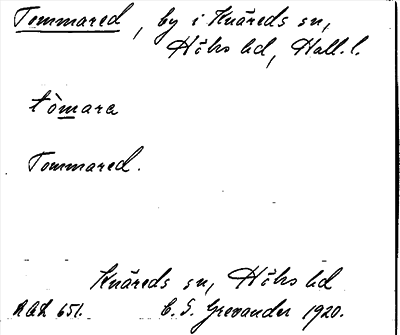 Tommared, by i Knäreds sn,
Höks hd, Hall. l.
tòmara
Tommared.
Knäreds sn, Höks hd
AGL 651. C. S. Grevander 1920.